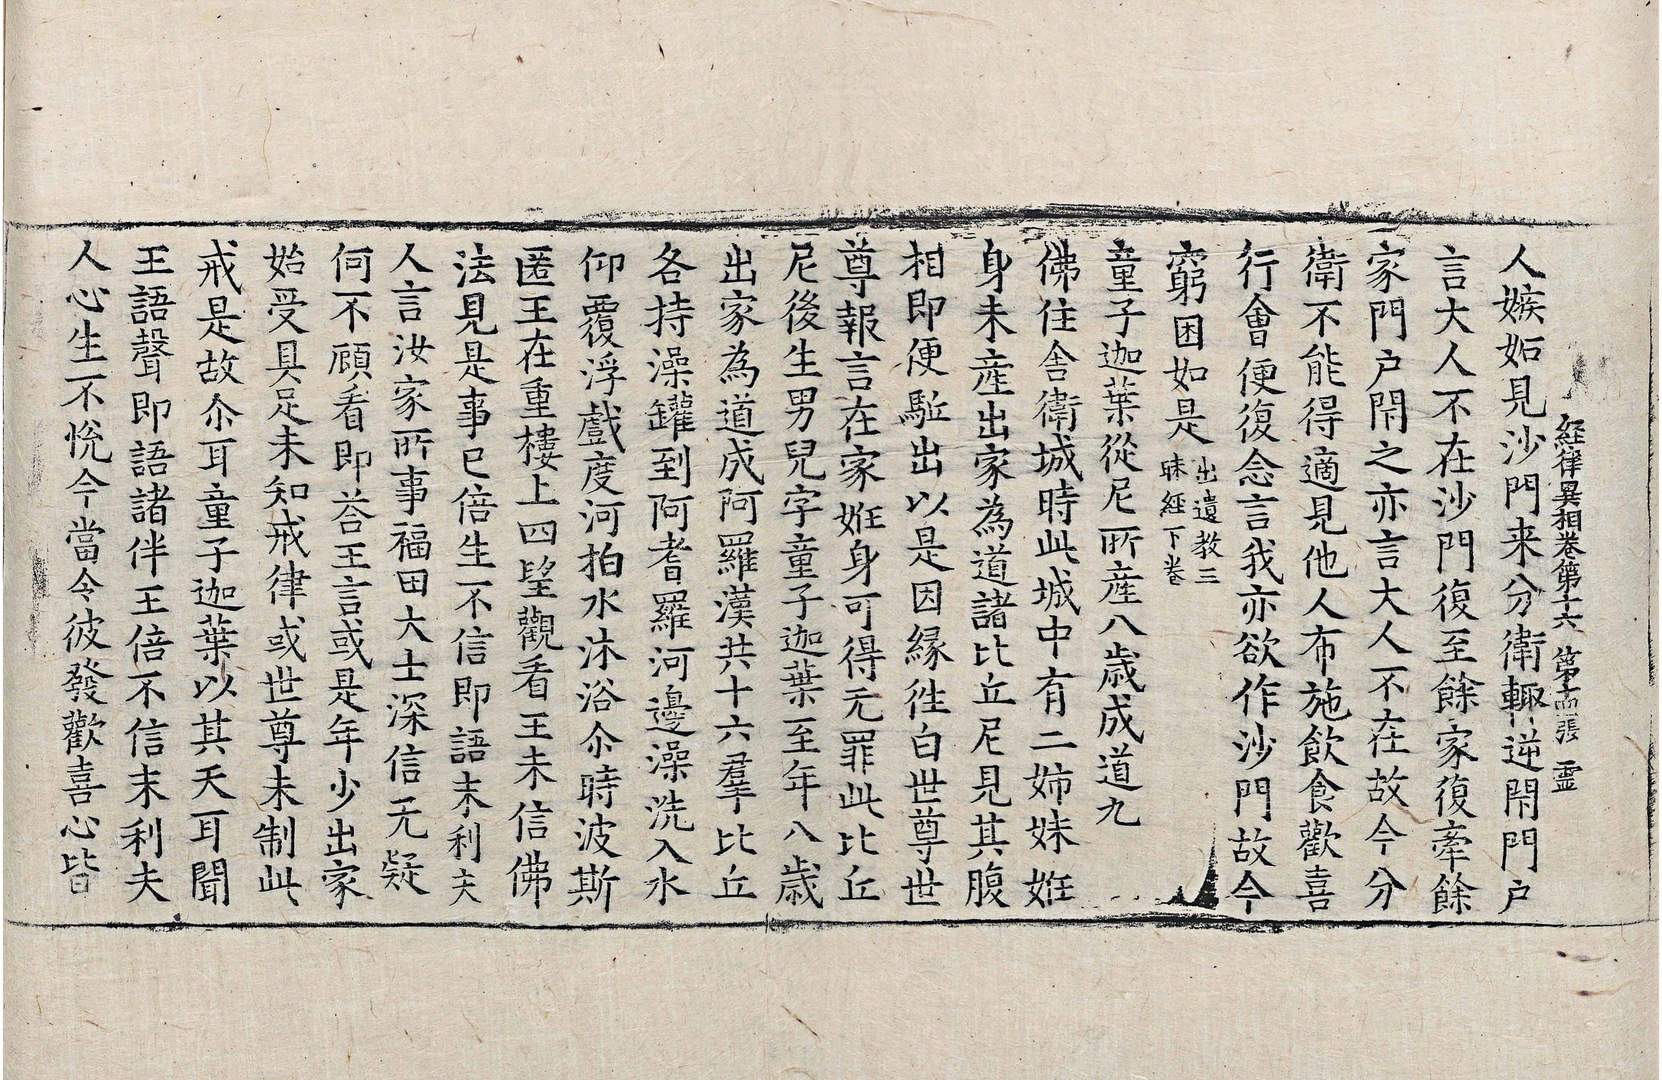 経律異相卷第十六 第 張 霊
人嫉妬見沙門来分衛輙逆閇門户
言大人不在沙門復至餘家復牽餘
家門户閇之亦言大人不在故今分
衛不能得適見他人布施飲食歡喜
行會便復念言我亦欲作沙門故今
窮困如是出遺教三
昧經下卷
童子迦葉從尼所産八歳成道九
佛住舎衛城時此城中有二姉妹姙
身未産出家為道諸比丘尼見其腹
相即便駈出以是因縁徃白世尊世
尊報言在家姙身可得无罪此比丘
尼後生男兒字童子迦葉至年八歳
出家為道成阿羅漢共十六羣比丘
各持澡鑵到阿耆羅河邊澡洗入水
仰覆浮戲度河拍水沐浴尒時波斯
匿王在重樓上四望觀看王未信佛
法見是事已倍生不信即語末利夫
人言汝家所事福田大士深信无疑
何不顧看即荅王言或是年少出家
始受具足未知戒律或世尊未制此
戒是故尒耳童子迦葉以其天耳聞
王語聲即語諸伴王倍不信末利夫
人心生不悅今當令彼發歡喜心皆